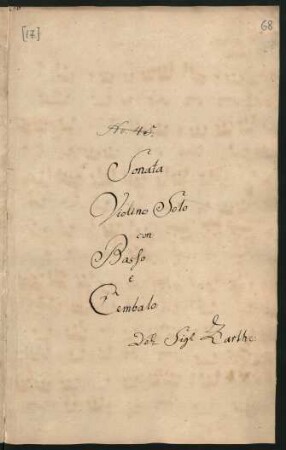 [17]
68
No. 45.
Sonata
Violino Solo
con
Basso
e
Cembalo
Sigl